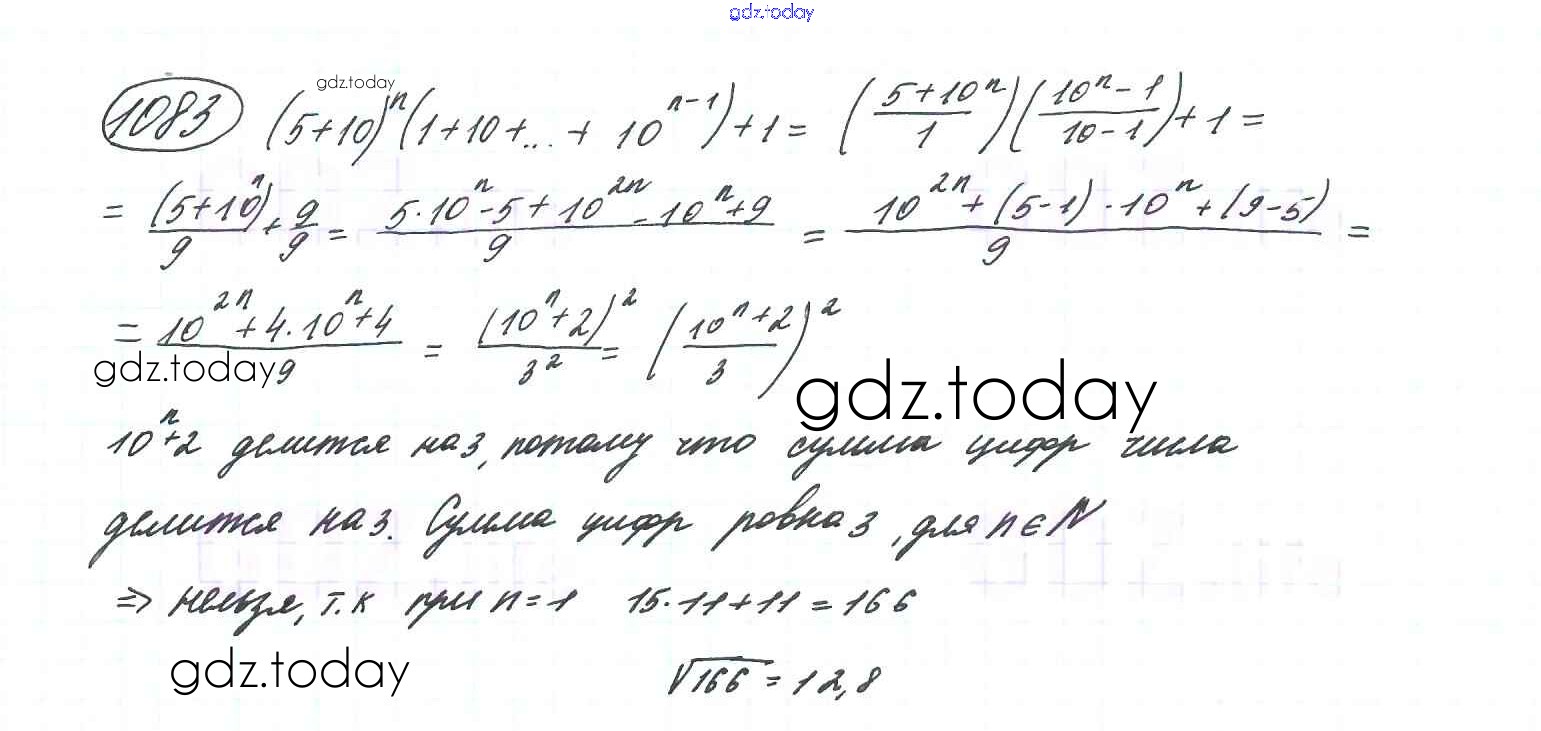 gdz.today
gdz.today
1083 (5+10)^n (1+10+...+ 10^{n-1})+1 = ((5+10^n)/1)((10^n-1)/(10-1))+1 =
= (5+10^n)/9 + 9/9 = (5·10^n-5+10^{2n}-10^n+9)/9 = (10^{2n}+(5-1)·10^n+(9-5))/9 =
= (10^{2n}+4·10^n+4)/9 = (10^n+2)^2/3^2 = ((10^n+2)/3)^2
gdz.today
gdz.today
10^n+2 делится на 3, потому что сумма цифр числа
делится на 3. Сумма цифр ровна 3, для n ∈ N
=> нельзя, т.к при n=1 15·11+11=166
gdz.today
√166 = 12,8